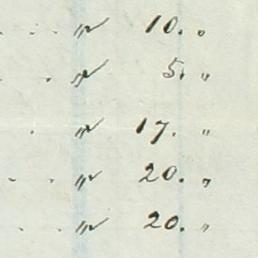 " 10. "
" 5. "
" 17. "
" 20. "
" 20. "